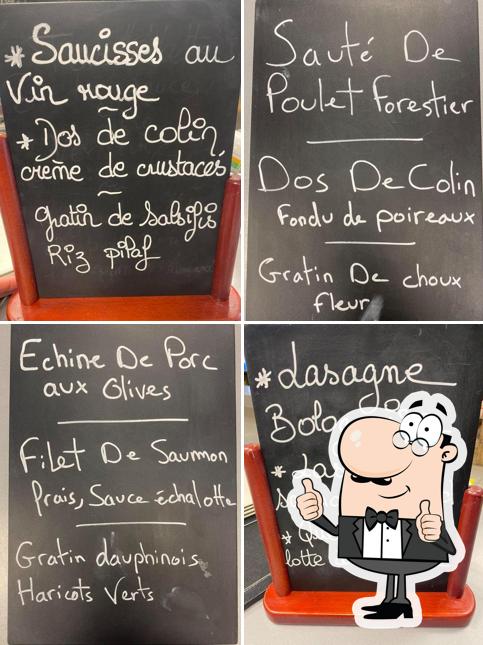 * Saucisses au
Vin rouge
~
* Dos de colin
crème de crustacés
~
gratin de Salsifis
Riz pilaf
Sauté De
Poulet Forestier
Dos De Colin
Fondu de poireaux
Gratin De choux
fleur
Echine De Porc
aux Olives
Filet De Saumon
Prais, Sauce échalotte
Gratin dauphinois
Haricots Verts
* Lasagne
lotte